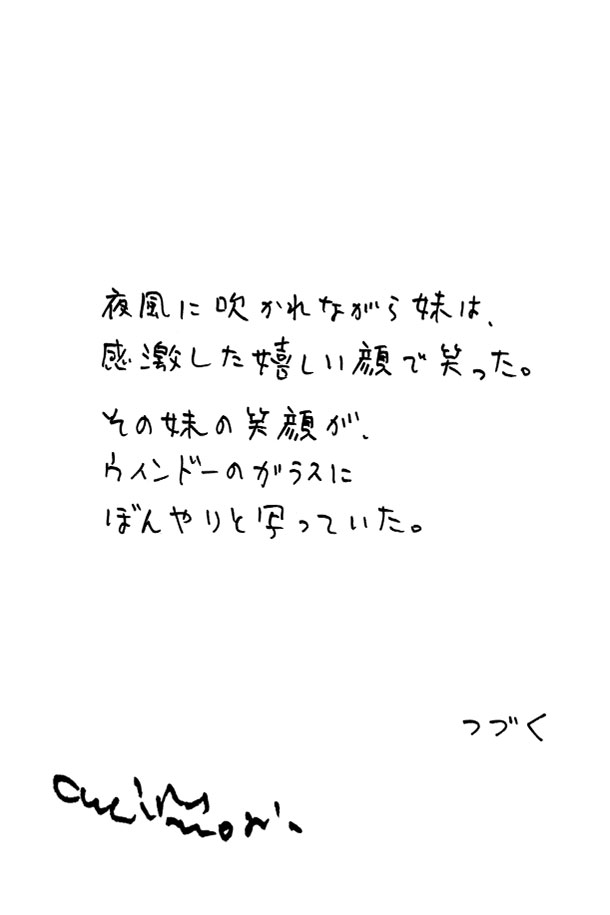 夜風に吹かれながら妹は、
感激した嬉しい顔で笑った。
その妹の笑顔が、
ウィンドーのガラスに
ぼんやりと写っていた。
つづく